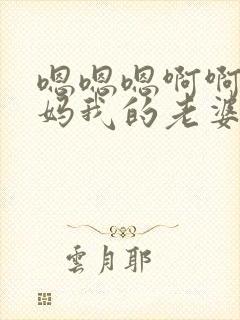 嗯嗯嗯啊啊
妈我的老婆
雲月耶